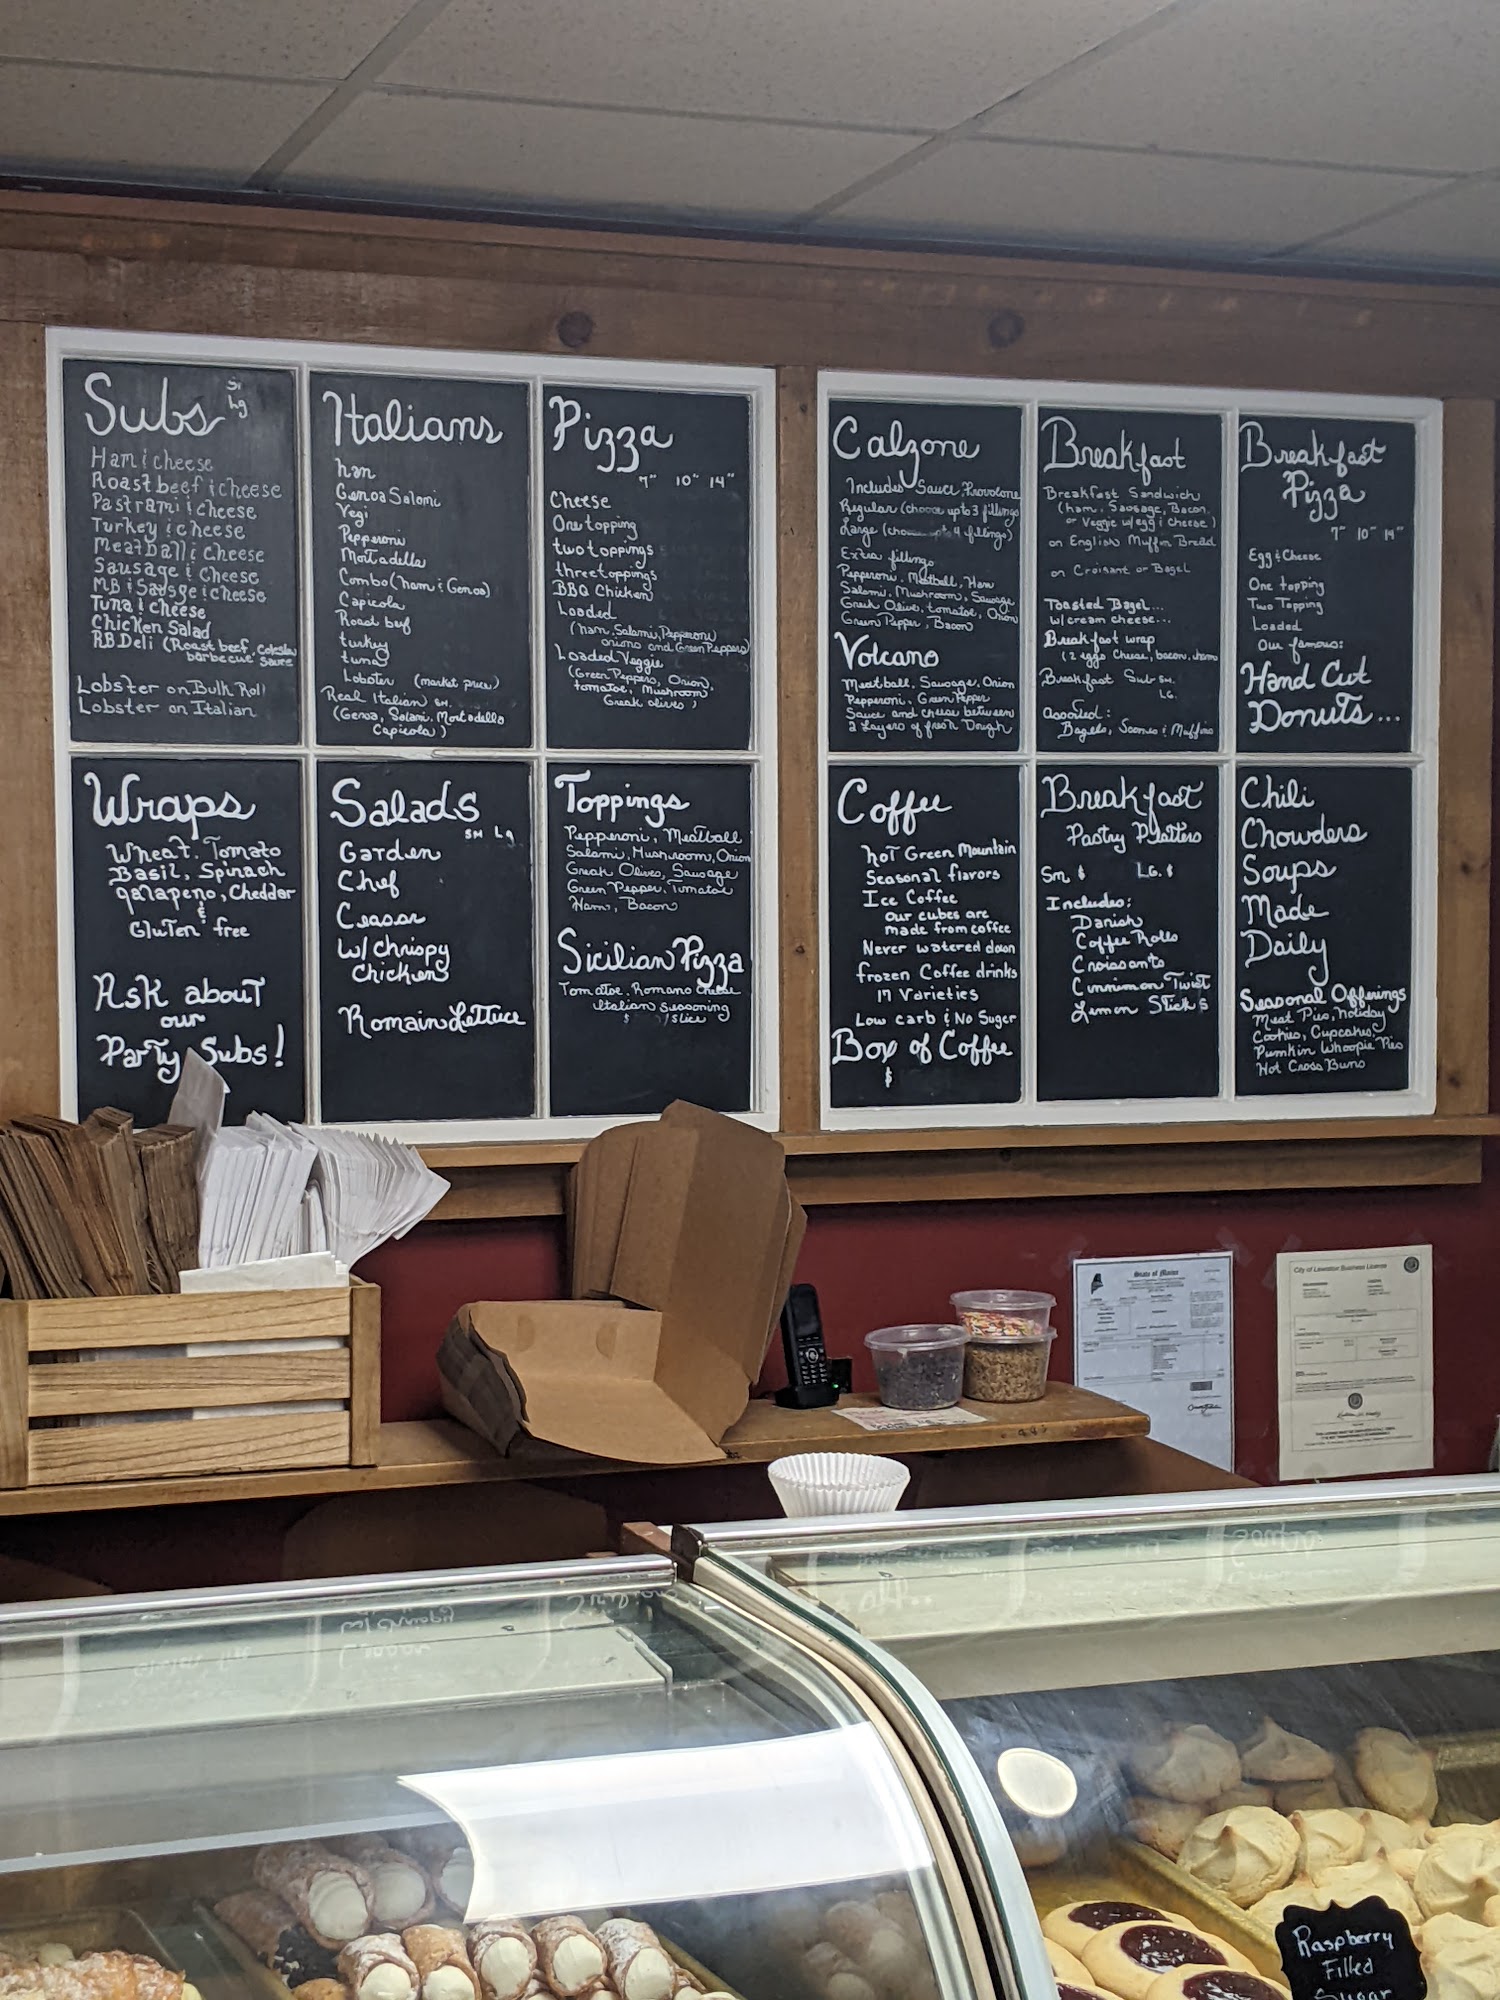 Subs
Sm
Lg
Ham & cheese
Roast beef & cheese
Pastrami & cheese
Turkey & cheese
Meatball & cheese
Sausage & Cheese
MB & Sausge & cheese
Tuna & cheese
Chicken Salad
RB Deli (Roast beef, coleslaw
barbecue sauce
Lobster on Bulk Roll
Lobster on Italian
Italians
ham
Genoa Salami
Vegi
Pepperoni
Mortadella
Combo (ham & Genoa)
Capicola
Roast beef
turkey
tuna
Lobster (market price)
Real Italian sm.
(Genoa, Salami, Mortadella
Capicola)
Pizza
7" 10" 14"
Cheese
One topping
two toppings
three toppings
BBQ Chicken
Loaded
(ham, Salami, Pepperoni
onions and Green Peppers)
Loaded Veggie
(Green Peppers, Onion,
tomatoe, Mushroom
Greak olives)
Wraps
Wheat, Tomato
Basil, Spinach
Jalapeno, Cheddar
&
Gluten free
Ask about
our
Party Subs!
Salads
SM Lg
Garden
Chef
Ceasar
W/ Chrispy
Chicken
Romain Lettuce
Toppings
Pepperoni, Meatball
Salami, Mushroom, Onion
Greak Olives, Sausage
Green Pepper, Tomatoe
Ham, Bacon
Sicilian Pizza
Tomatoe, Romano cheese
Italian Seasoning
$ /slice
Calzone
Includes Sauce, Provolone
Regular (choose up to 3 fillings
Large (choose up to 4 fillings)
Extra fillings
Pepperoni, Meatball, Ham
Salami, Mushroom, Sausage
Greek Olive, tomatoe, Onion
Green Pepper, Bacon
Volcano
Meatball, Sausage, Onion
Pepperoni, Green Pepper
Sauce and cheese between
2 Layers of fresh Dough
Breakfast
Breakfast Sandwich
(ham, Sausage, Bacon
or Veggie w/egg & cheese)
on English Muffin Bread
on Croisant or Bagel
Toasted Bagel...
w/ cream cheese...
Breakfast wrap
(2 eggs cheese, bacon, ham
Breakfast Sub sm.
LG.
assorted:
Bagels, Scones & Muffins
Breakfast
Pizza
7" 10" 14"
Egg & Cheese
One topping
Two Topping
Loaded
Our famous:
Hand Cut
Donuts...
Coffee
hot Green Mountain
Seasonal flavors
Ice Coffee
our cubes are
made from coffee
Never watered down
frozen Coffee drinks
17 Varieties
Low carb & No Suger
Box of Coffee
$
Breakfast
Pastry Platters
Sm $ LG. $
Includes:
Danish
Coffee Rolls
Croissants
Cinnimon Twist
Lemon Sticks
Chili
Chowders
Soups
Made
Daily
Seasonal Offerings
Meat Pies, holiday
Cookies, Cupcakes
Pumkin Whoopie Pies
Hot Cross Buns
State of Maine
City of Lewiston Business License
Raspberry
Filled
Sugar